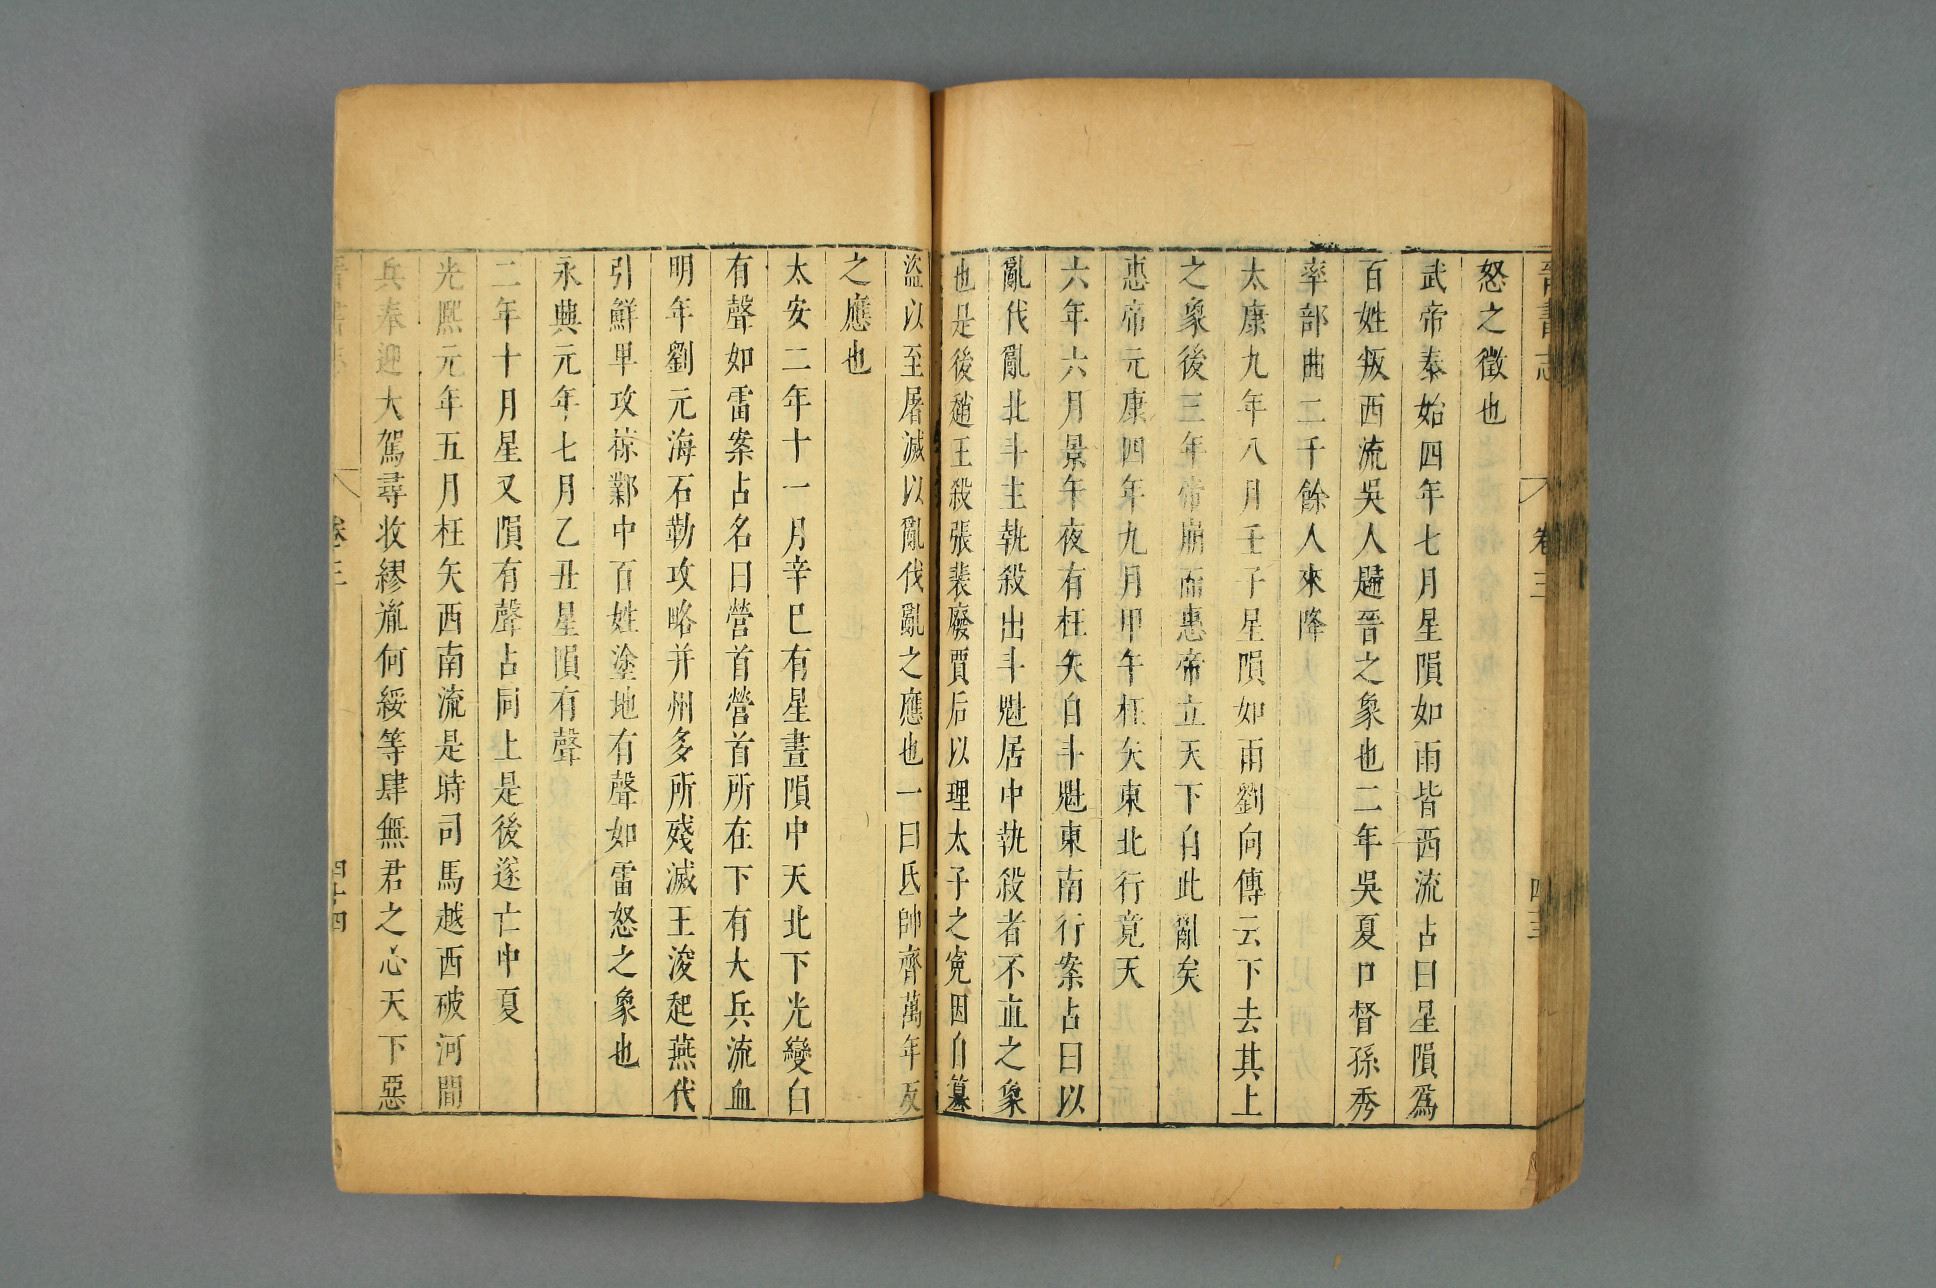 晉書志 卷三 四十三
怒之徵也
武帝泰始四年七月星隕如雨皆西流占曰星隕爲
百姓叛西流吳人歸晉之象也二年吳夏口督孫秀
率部曲二千餘人來降
太康九年八月壬子星隕如雨劉向傳云下去其上
之象後三年帝崩而惠帝立天下自此亂矣
惠帝元康四年九月甲午枉矢東北行竟天
六年六月景午夜有枉矢自斗魁東南行案占曰以
亂伐亂北斗主執殺出斗魁居中執殺者不直之象
也是後趙王殺張裴廢賈后以理太子之寃因自篡
盜以至屠滅以亂伐亂之應也一曰氐帥齊萬年反
之應也
太安二年十一月辛巳有星晝隕中天北下光變白
有聲如雷案占名曰營首營首所在下有大兵流血
明年劉元海石勒攻略并州多所殘滅王浚起燕代
引鮮卑攻掠鄴中百姓塗地有聲如雷怒之象也
永興元年七月乙丑星隕有聲
二年十月星又隕有聲占同上是後遂亡中夏
光熙元年五月枉矢西南流是時司馬越西破河間
兵奉迎大駕尋收繆胤何綏等肆無君之心天下惡
晉書志 卷三 四十四